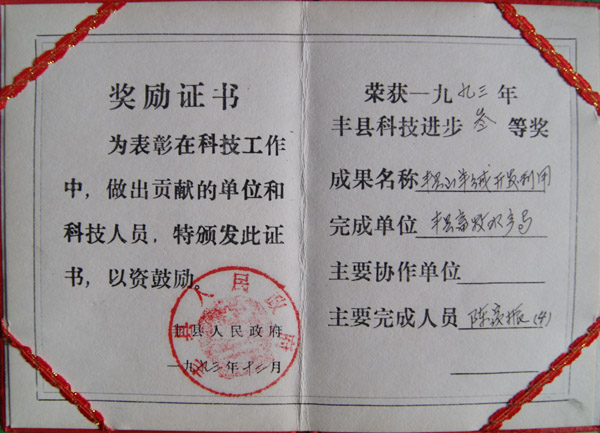 奖励证书
为表彰在科技工作
中，做出贡献的单位和
科技人员，特颁发此证
书，以资鼓励。
丰县人民政府
一九九三年十二月
荣获一九九三年
丰县科技进步叁等奖
成果名称 丰县羊绒开发利用
完成单位 丰县畜牧水产局
主要协作单位
主要完成人员 陈
(4)